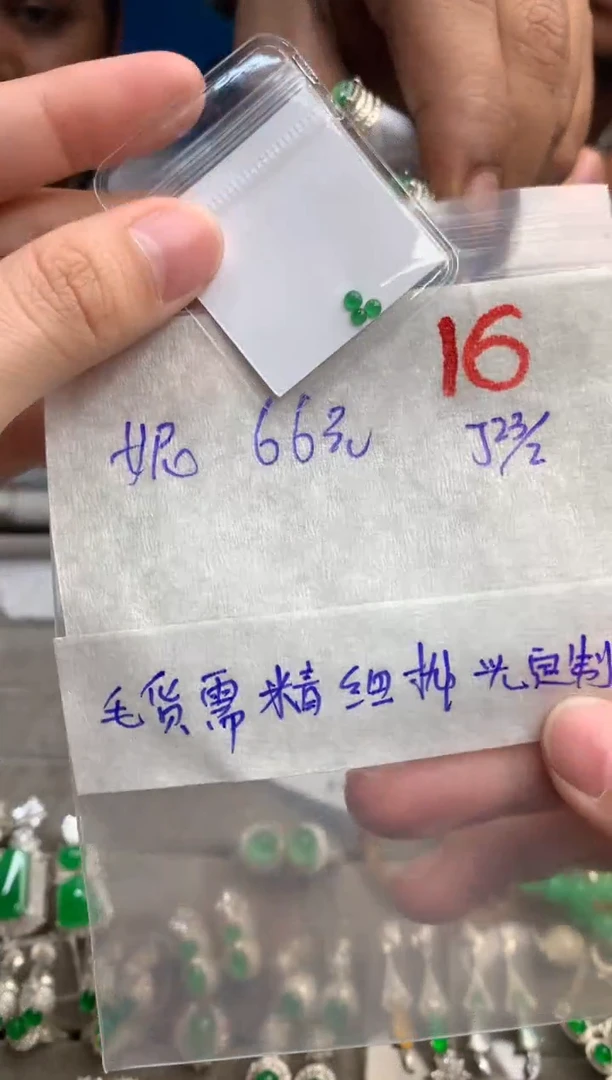 16
妮 66元 J23/2
毛货需精细抛光定制